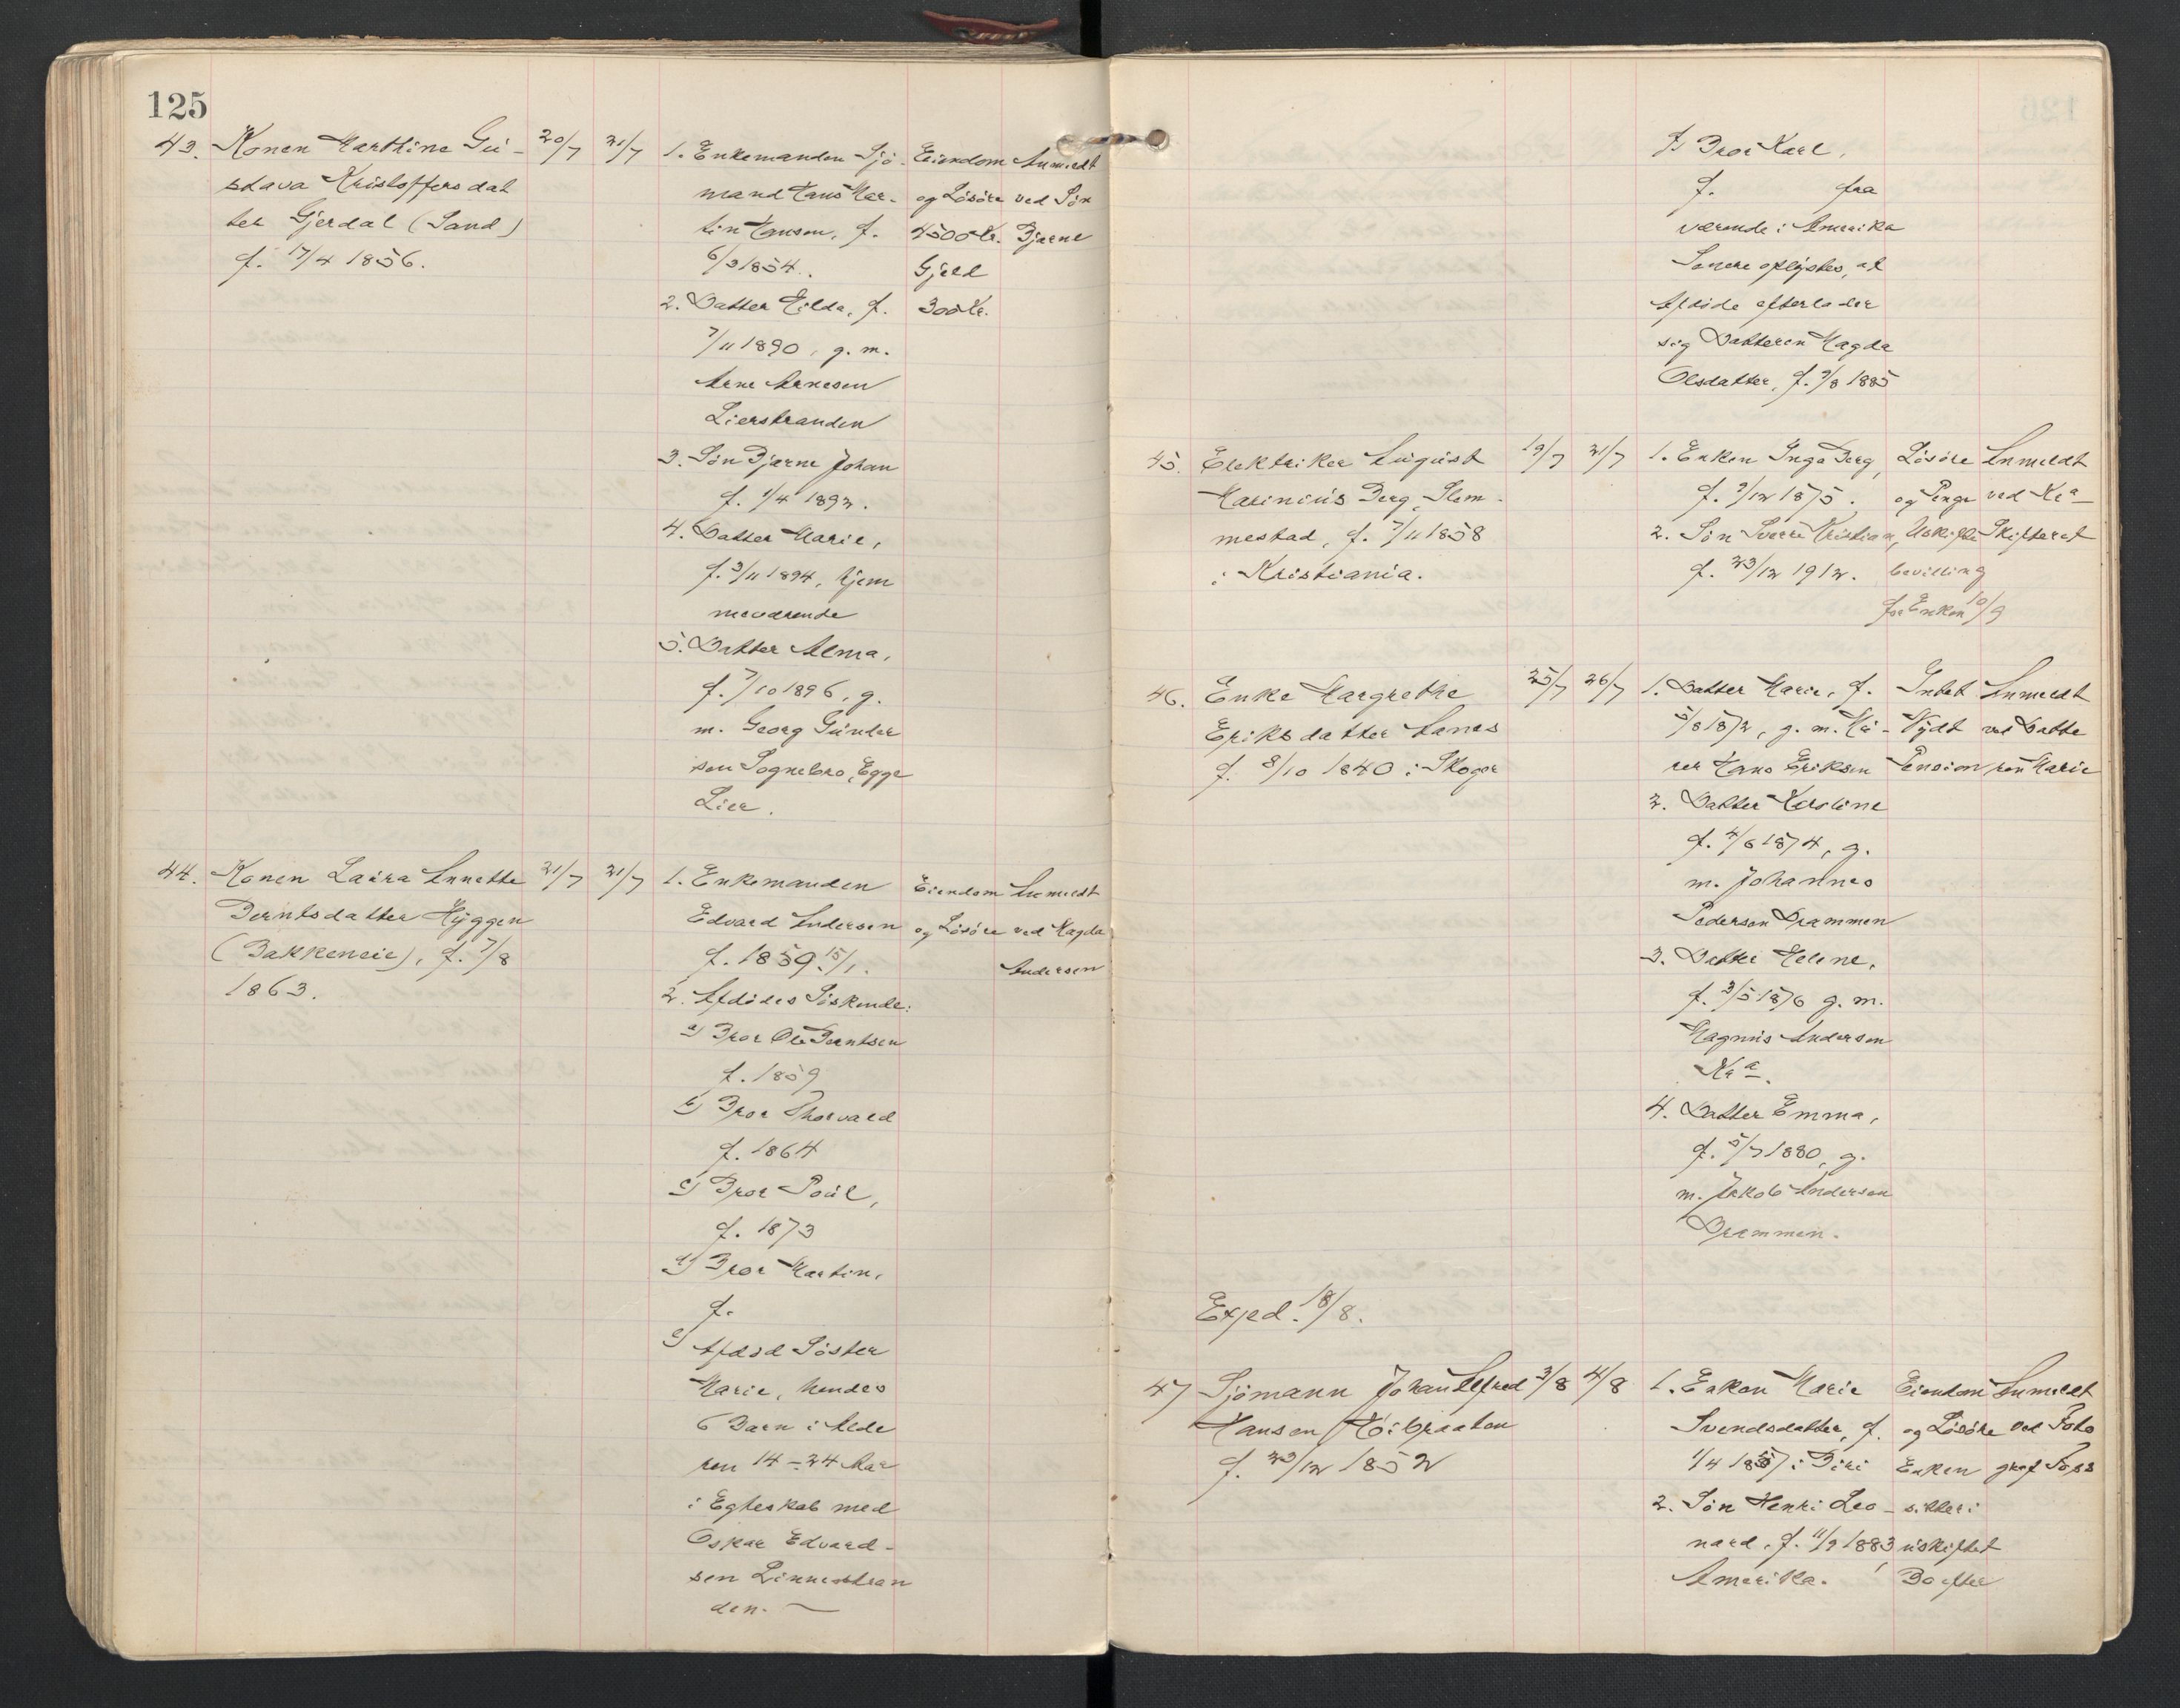 125
43. Konen Marthine Gu-
stava Kristoffersdat
ter Gjerdal (Sand)
f. 17/4 1856.
20/7 21/7
1. Enkemanden Sjö-
mand Hans Mar-
tin Hansen, f.
6/3 1854.
2. Datter Hilda, f.
7/11 1890, g. m.
Arne Arnesen
Lierstranden
3. Sön Bjarne Johan
f. 1/4 1892.
4. Datter Marie,
f. 3/11 1894, hjem
meværende
5. Datter Alma,
f. 7/10 1896, g.
m. Georg Gunder
sen Sognebro, Egge
Lier.
Eiendom
og Lösöre
4500 Kr.
Gjæld
300 Kr.
Anmeldt
ved Sön
Bjarne
44. Konen Laura Annette
Berntsdatter Hyggen
(Bakkeneie), f. 7/8
1863.
21/7 21/7
1. Enkemanden
Edvard Andersen
f. 1859 15/1.
2. Afdödes Söskende:
a) Bror Ole Berntsen
f. 1859
b) Bror Thorvald
f. 1864
c) Bror Poul,
f. 1873
d) Bror Martin,
f.
e) Afdöd Söster
Marie, hendes
6 Barn i Alde
ren 14-24 Aar
i Egteskab med
Oskar Edvard-
sen Linnestran
den.
Eiendom
og Lösöre
Anmeldt
ved Magda
Andersen
f) Bror Karl,
f. fra
værende i Amerika
Senere oplystes, at
Afdöde efterlader
sig Datteren Magda
Olsdatter, f. 9/8 1885
45. Elektriker August
Marinius Berg, Slem-
mestad, f. 7/11 1858
i Kristiania.
19/7 21/7
1. Enken Inga Berg,
f. 9/12 1875.
2. Sön Sverre Kristian,
f. 23/12 1912.
Lösöre
og Penge
Uskifte
bevilling
for Enken 10/9
Anmeldt
ved Kr a
Skifteret
46. Enke Margrethe
Eriksdatter Sanes
f. 8/10 1840 i Skoger
25/7 26/7
1. Datter Marie, f.
5/8 1872, g. m. Mu-
rer Hans Eriksen
2. Datter Kerstine
f. 4/6 1874, g.
m. Johannes
Pedersen Drammen
3. Datter Helene,
f. 3/5 1876 g. m.
Magnus Andersen
Kr a.
4. Datter Emma,
f. 5/7 1880, g.
m. Jakob Andersen
Drammen.
Intet
Nydt
Pension
Anmeldt
ved Datte
ren Marie
Exped. 18/8.
47 Sjömann Johan Alfred
Hansen Höibraaten
f. 23/12 1852
3/8 4/8
1. Enken Marie
Svendsdatter, f.
1/4 1857 i Biri
2. Sön Henri Leo-
nard, f. 11/9 1883,
Amerika.
Eiendom
og Lösöre
Enken
sitter i
uskiftet
Bo efter
Anmeldt
ved Foto
graf Foss